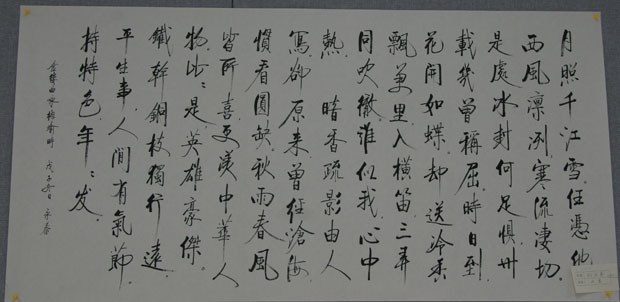 月照千江雪任憑他
西風凛冽寒流凄切
是處冰封何足懼卅
載幾曾稱屈時日到
花開如蝶却送冷香
飄萬里入横笛三弄
同吹徹誰似我心中
熱 暗香疏影由人
寫却原来曾經滄海
慣看圓缺秋雨春風
皆所喜更 中華人
物比比是英雄豪傑
鐵幹銅枝獨行遠
平生事人間有氣節
持特色年年发
金縷曲寒梅 戊子冬日